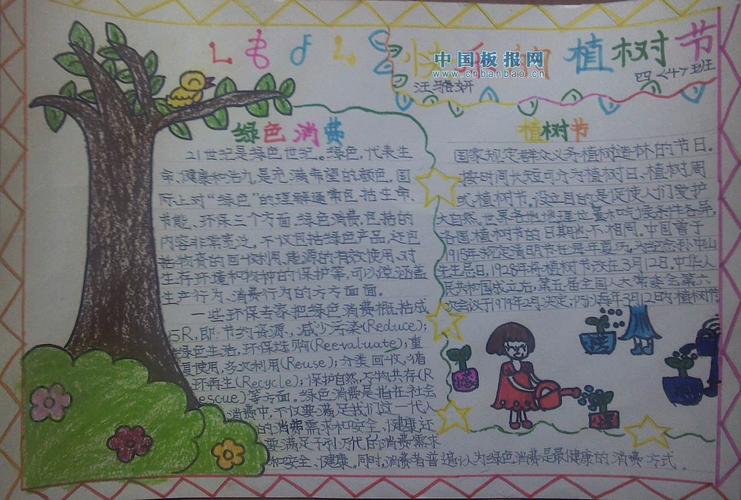 快乐的植树节
中国板报网
www.cnbanbao.cn
四<4>班
汪雅妍
绿色消费
21世纪是绿色世纪。绿色,代表生
命,健康和活力,是充满希望的颜色。国
际上对“绿色”的理解通常包括生命、
节能、环保三个方面。绿色消费,包括的
内容非常宽泛,不仅包括绿色产品,还包
括物资的回收利用,能源的有效使用,对
生存环境和物种的保护等,可以说涵盖
生产行为、消费行为的方方面面。
一些环保专家把绿色消费概括成
5R,即:节约资源,减少污染(Reduce);
绿色生活,环保选购(Reevaluate);重
复使用,多次利用(Reuse);分类回收,循
环再生(Recycle);保护自然,万物共存(R
escue)等方面。绿色消费是指在社会
消费中,不仅要满足我们这一代人
的消费需求和安全、健康,还
要满足子孙万代的消费需求
和安全、健康。同时,消费者普遍认为绿色消费是最健康的消费方式。
植树节
国家规定群众义务植树造林的节日。
按时间长短可分为植树日、植树周
或植树节。设立目的是促使人们爱护
大自然。世界各地地理位置和气候条件各异,
各国植树节的日期也不相同。中国曾于
1915年规定清明节在每年夏历,为纪念孙中山
先生忌日,1928年将植树节改在3月12日。中华人
民共和国成立后,第五届全国人大常委会第六
次会议于1979年2月决定,仍以每年3月12日为植树节